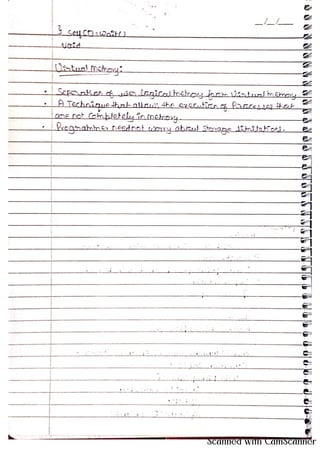 __/__/____
3 self[i].wait()
void
Virtual memory:
• Seperation of user logical memory form Virtual memory
• A Technique that allows the execution of Processes that
are not Completely in memory.
• Programmer need not worry about Storage limitations.
Scanned with CamScanner